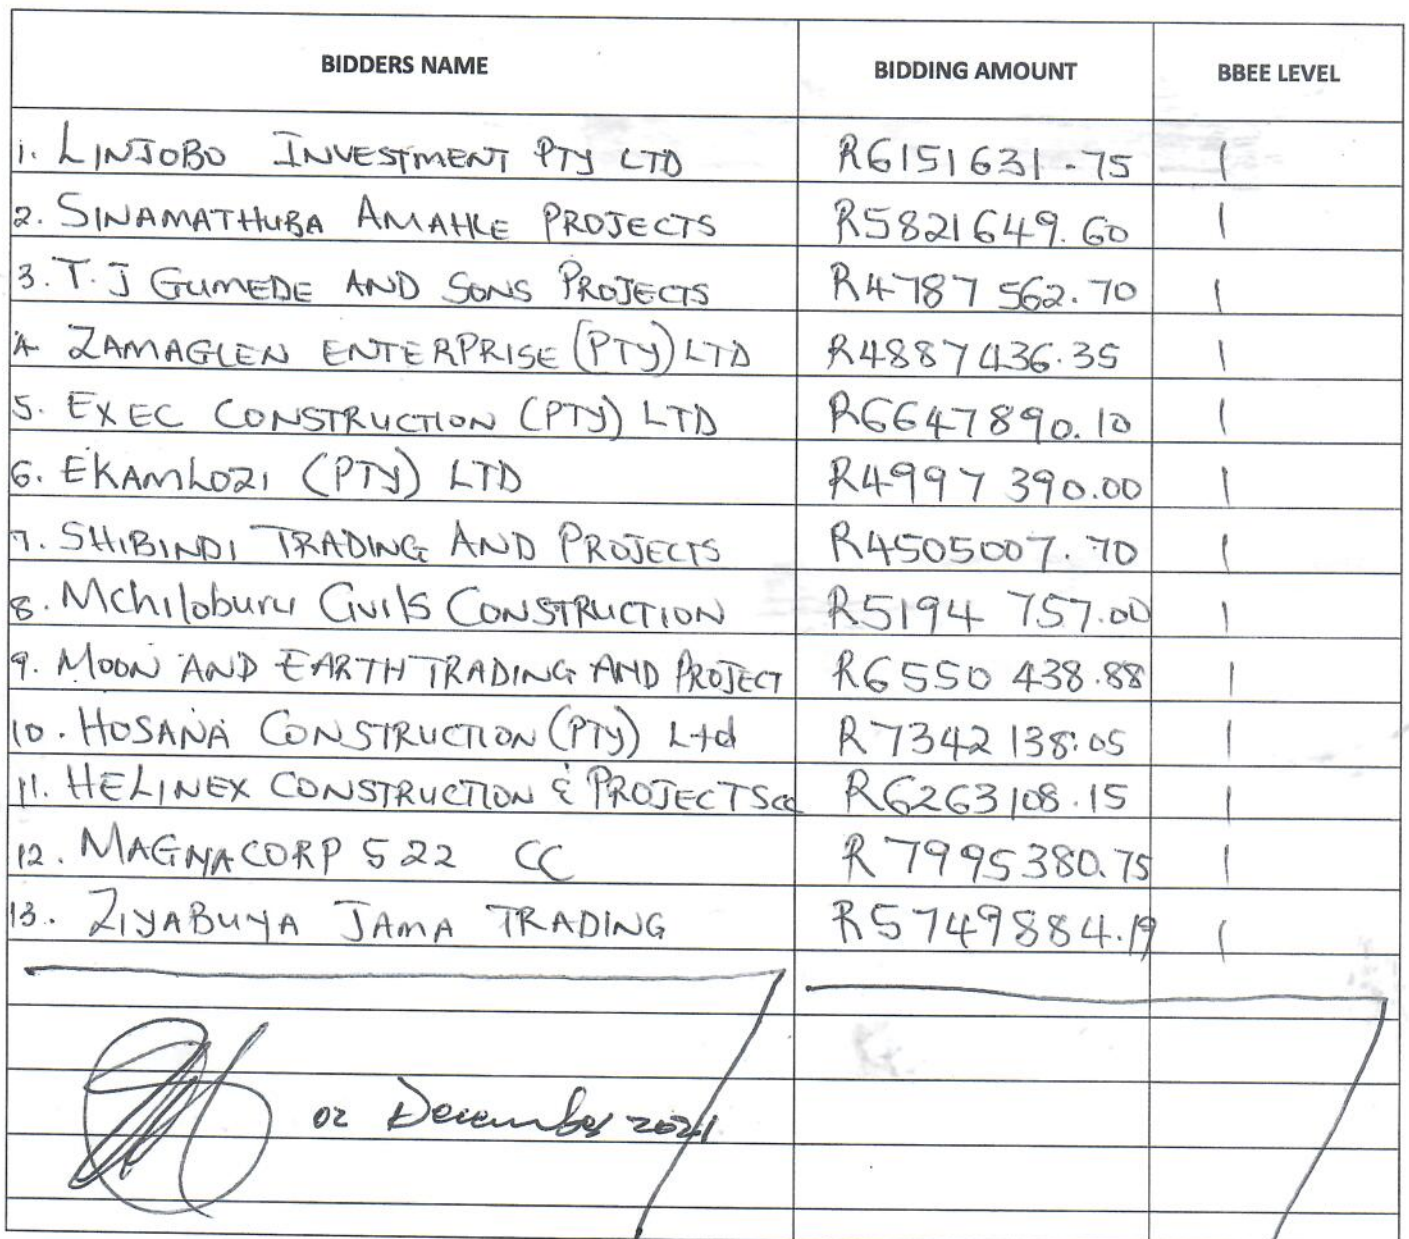 BIDDERS NAME BIDDING AMOUNT BBEE LEVEL
1. LINJOBO INVESTMENT PTY LTD R6151631-75 1
2. SINAMATHUBA AMAHLE PROJECTS R5821649.60 1
3. T.J GUMEDE AND SONS PROJECTS R4787 562.70 1
4 ZAMAGLEN ENTERPRISE (PTY) LTD R4887436.35 1
5. EXEC CONSTRUCTION (PTY) LTD R6647890.10 1
6. EKAMLOZI (PTY) LTD R4997 390.00 1
7. SHIBINDI TRADING AND PROJECTS R4505007.70 1
8. Mchiloburu Civils CONSTRUCTION R5194 757.00 1
9. MOON AND EARTH TRADING AND PROJECT R6550 438.88 1
10. HOSANA CONSTRUCTION (PTY) Ltd R7342138.05 1
11. HELINEX CONSTRUCTION & PROJECTS cc R6263108.15 1
12. MAGNACORP 522 CC R7995380.75 1
13. ZIYABUYA JAMA TRADING R5749884.19 1
02 December 2021